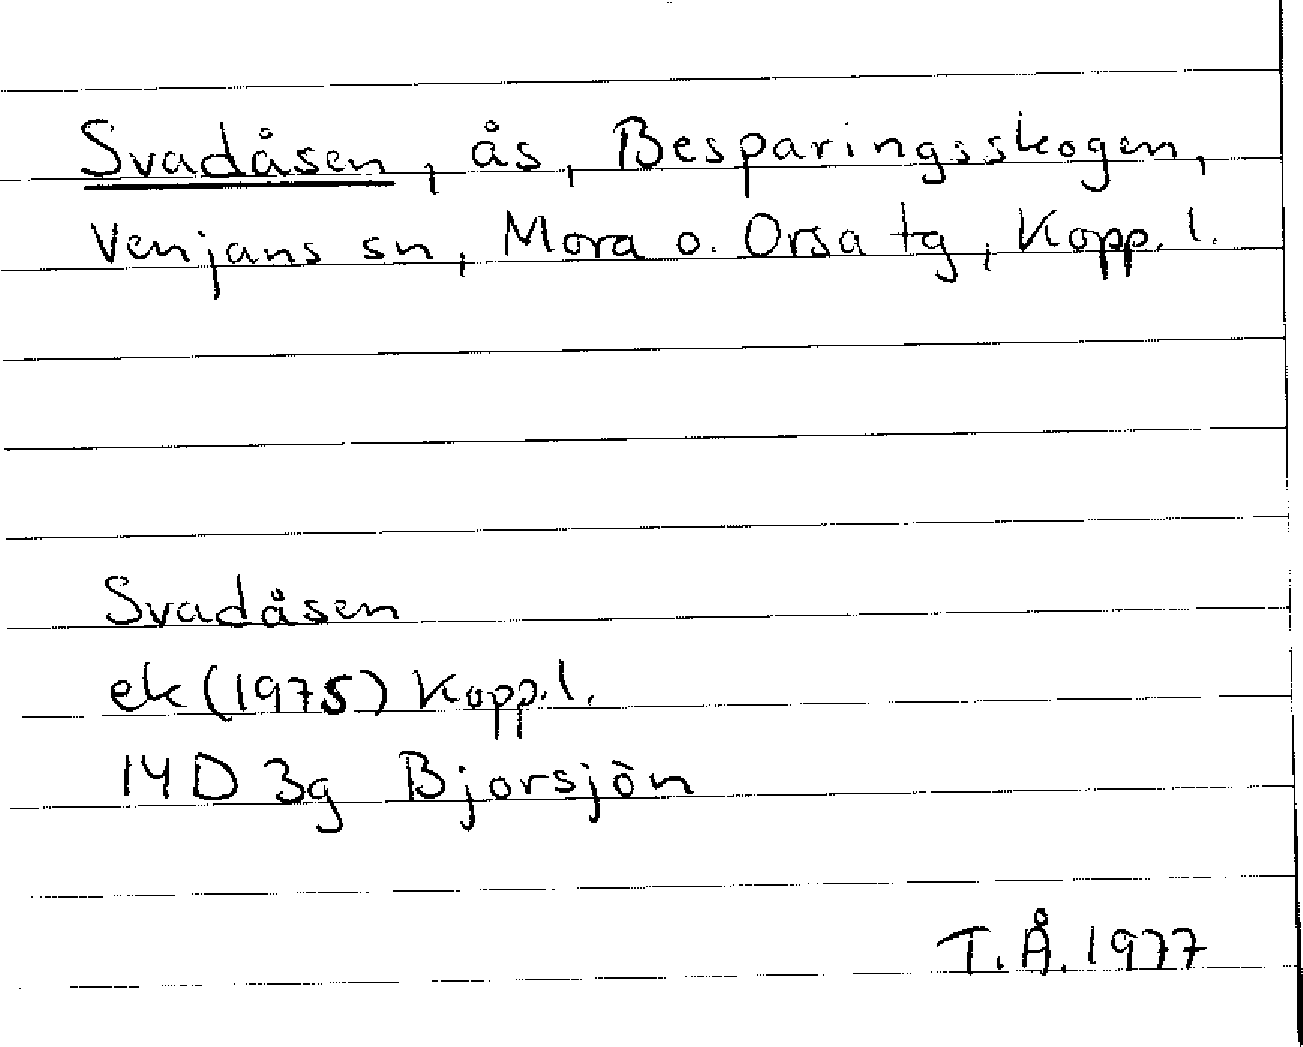 Svadåsen, ås, Besparingsskogen,
Venjans sn, Mora o. Orsa tg, Kopp. l.
Svadåsen
ek (1975) Kopp. l.
14 D 3g Bjorsjön
T.Å. 1977